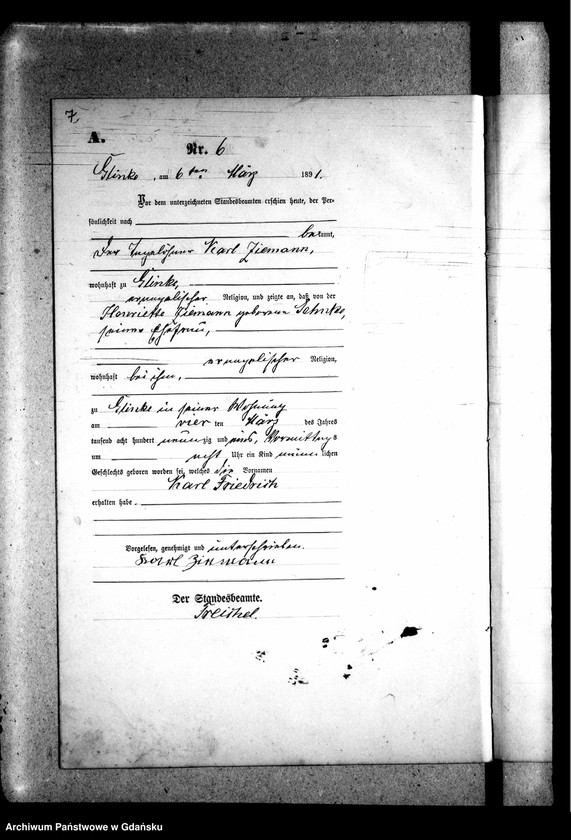 7.
A.
Nr. 6
Glinke, am 6ten März 1891.
Vor dem unterzeichneten Standesbeamten erschien heute, der Per-
sönlichkeit nach
bekannt,
der Tagelöhner Karl Ziemann,
wohnhaft zu Glinke,
evangelischer Religion, und zeigte an, daß von der
Henriette Ziemann geborene
seiner Ehefrau,
evangelischer Religion,
wohnhaft bei ihm,
zu Glinke in seiner Wohnung
am vier ten März des Jahres
tausend acht hundert neunzig und eins, Vormittags
um acht Uhr ein Kind männlichen
Geschlechts geboren worden sei, welches die Vornamen
Karl Friedrich
erhalten habe.
Vorgelesen, genehmigt und unterschrieben.
Karl Ziemann
Der Standesbeamte.
Archiwum Państwowe w Gdańsku